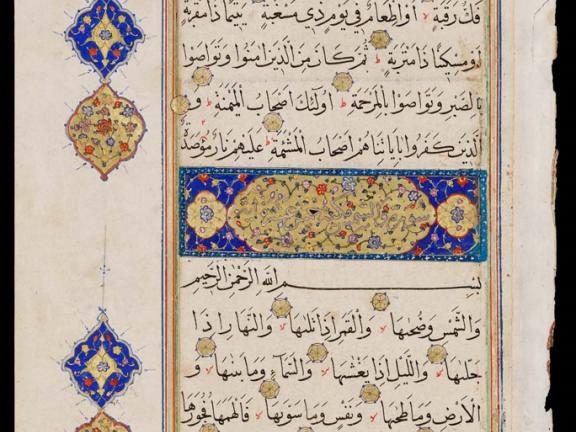 فَكُّ رَقَبَةٍ أَوْ إِطْعَامٌ فِي يَوْمٍ ذِي مَسْغَبَةٍ يَتِيمًا ذَا مَقْرَبَةٍ
أَوْ مِسْكِينًا ذَا مَتْرَبَةٍ ثُمَّ كَانَ مِنَ الَّذِينَ آمَنُوا وَتَوَاصَوْا
بِالصَّبْرِ وَتَوَاصَوْا بِالْمَرْحَمَةِ أُولَئِكَ أَصْحَابُ الْمَيْمَنَةِ وَ
الَّذِينَ كَفَرُوا بِآيَاتِنَا هُمْ أَصْحَابُ الْمَشْئَمَةِ عَلَيْهِمْ نَارٌ مُوصَدَةٌ
بِسْمِ اللَّهِ الرَّحْمَنِ الرَّحِيمِ
وَالشَّمْسِ وَضُحَيهَا وَالْقَمَرِ إِذَا تَلَيهَا وَالنَّهَارِ إِذَا
جَلَّيهَا وَاللَّيْلِ إِذَا يَغْشَيهَا وَالسَّمَاءِ وَمَا بَنَيهَا وَ
الْأَرْضِ وَمَا طَحَيهَا وَنَفْسٍ وَمَا سَوَّيهَا فَأَلْهَمَهَا فُجُورَهَا